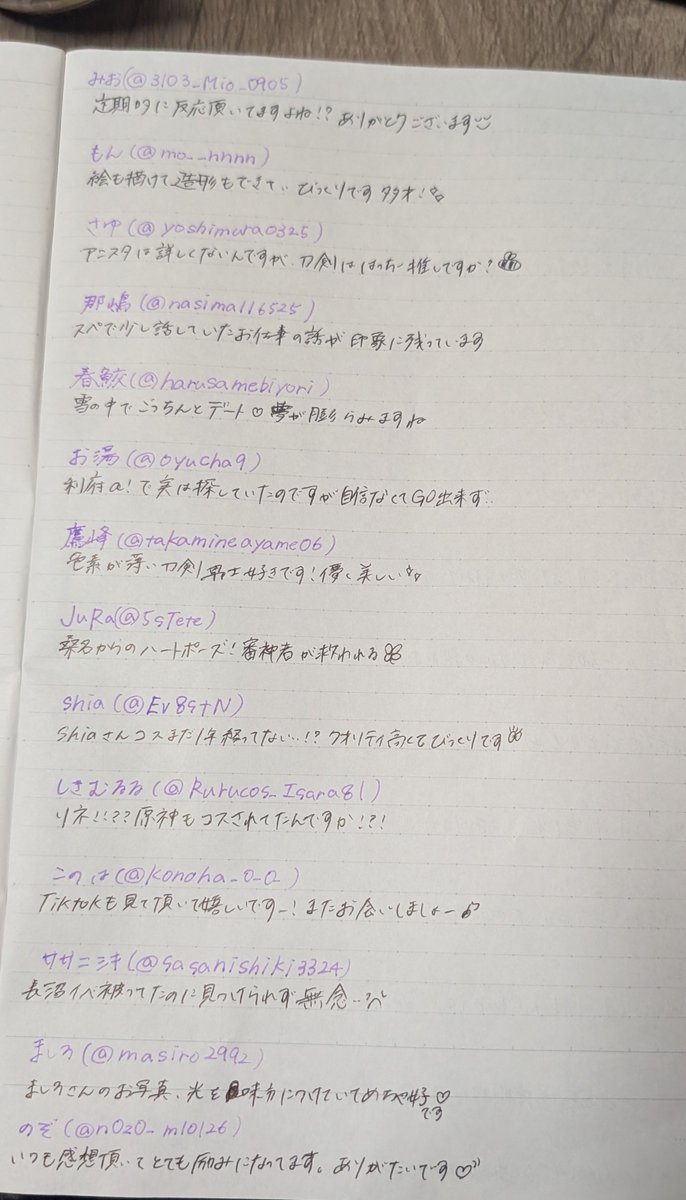 みお(@3103_Mio_0905)
定期的に反応頂いてますよね!? ありがとうございます
もん(@mo__nnnn)
絵も描けて造形もできて.. びっくりです 多才!
さゆ(@yoshimura0325)
アニスタは詳しくないんですが、刀剣ははっちー推しですか?
那嶋(@nasima116525)
スペで少し話していたお仕事の話が印象に残っています
春鮫(@harusamebiyori)
雪の中でごっちんとデート♡ 夢が膨らみますね
お湯(@oyucha9)
利府a!で実は探していたのですが自信なくてGO出来ず..
鷹峰(@takamineayame06)
色素が薄い刀剣男士好きです!儚く美しい
JuRa(@5sTete)
桑名からのハートポーズ!審神者が救われる
shia(@Ev8s+N)
shiaさんコスまだ1年経ってない..!? クオリティ高くてびっくりです
しきむるる(@Rurucos_Isana81)
リネ!!??原神もコスされてたんですか!?!
このは(@konoha_0_0_)
TikTokも見て頂いて嬉しいですー!またお会いしましょー♪
ササニシキ(@sasanishiki3324)
長沼イベ被ってたのに見つけられず無念..
ましろ(@masiro2992)
ましろさんのお写真、光を味方につけていてめちゃ好♡
です
のぞ(@n0z0_m10126)
いつも感想頂いてとても励みになってます。ありがたいです♡